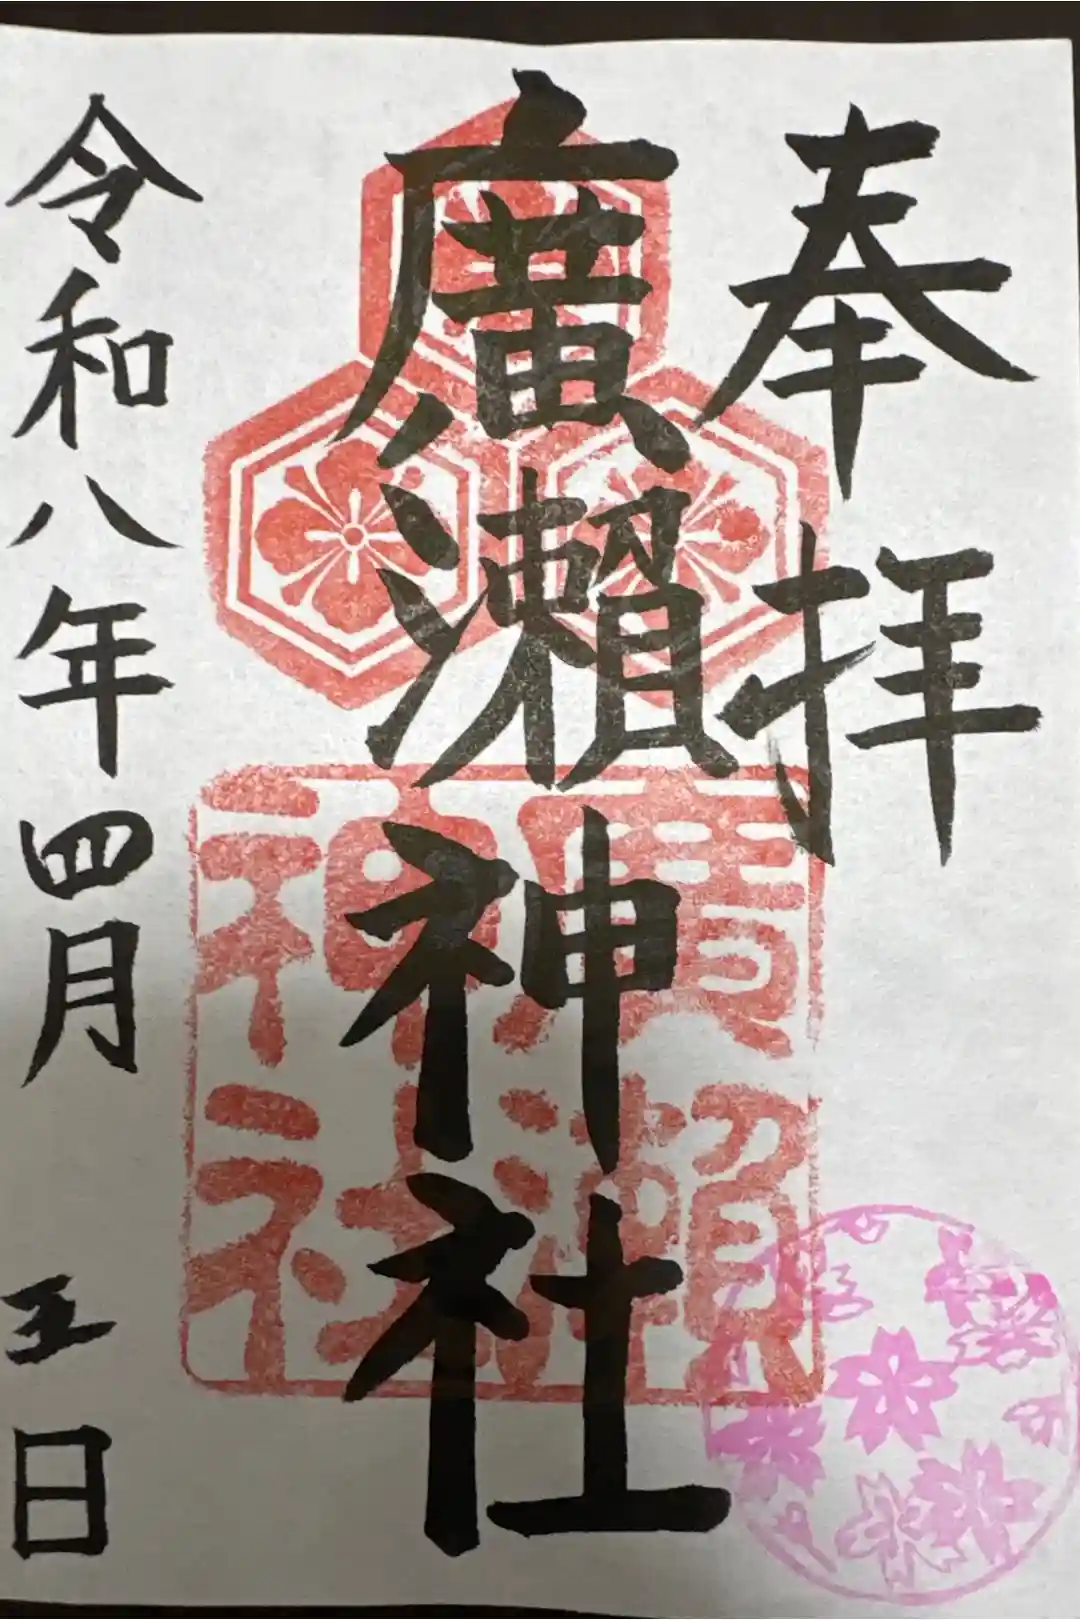 奉拝
廣瀬神社
廣瀬神社
令和八年四月五日